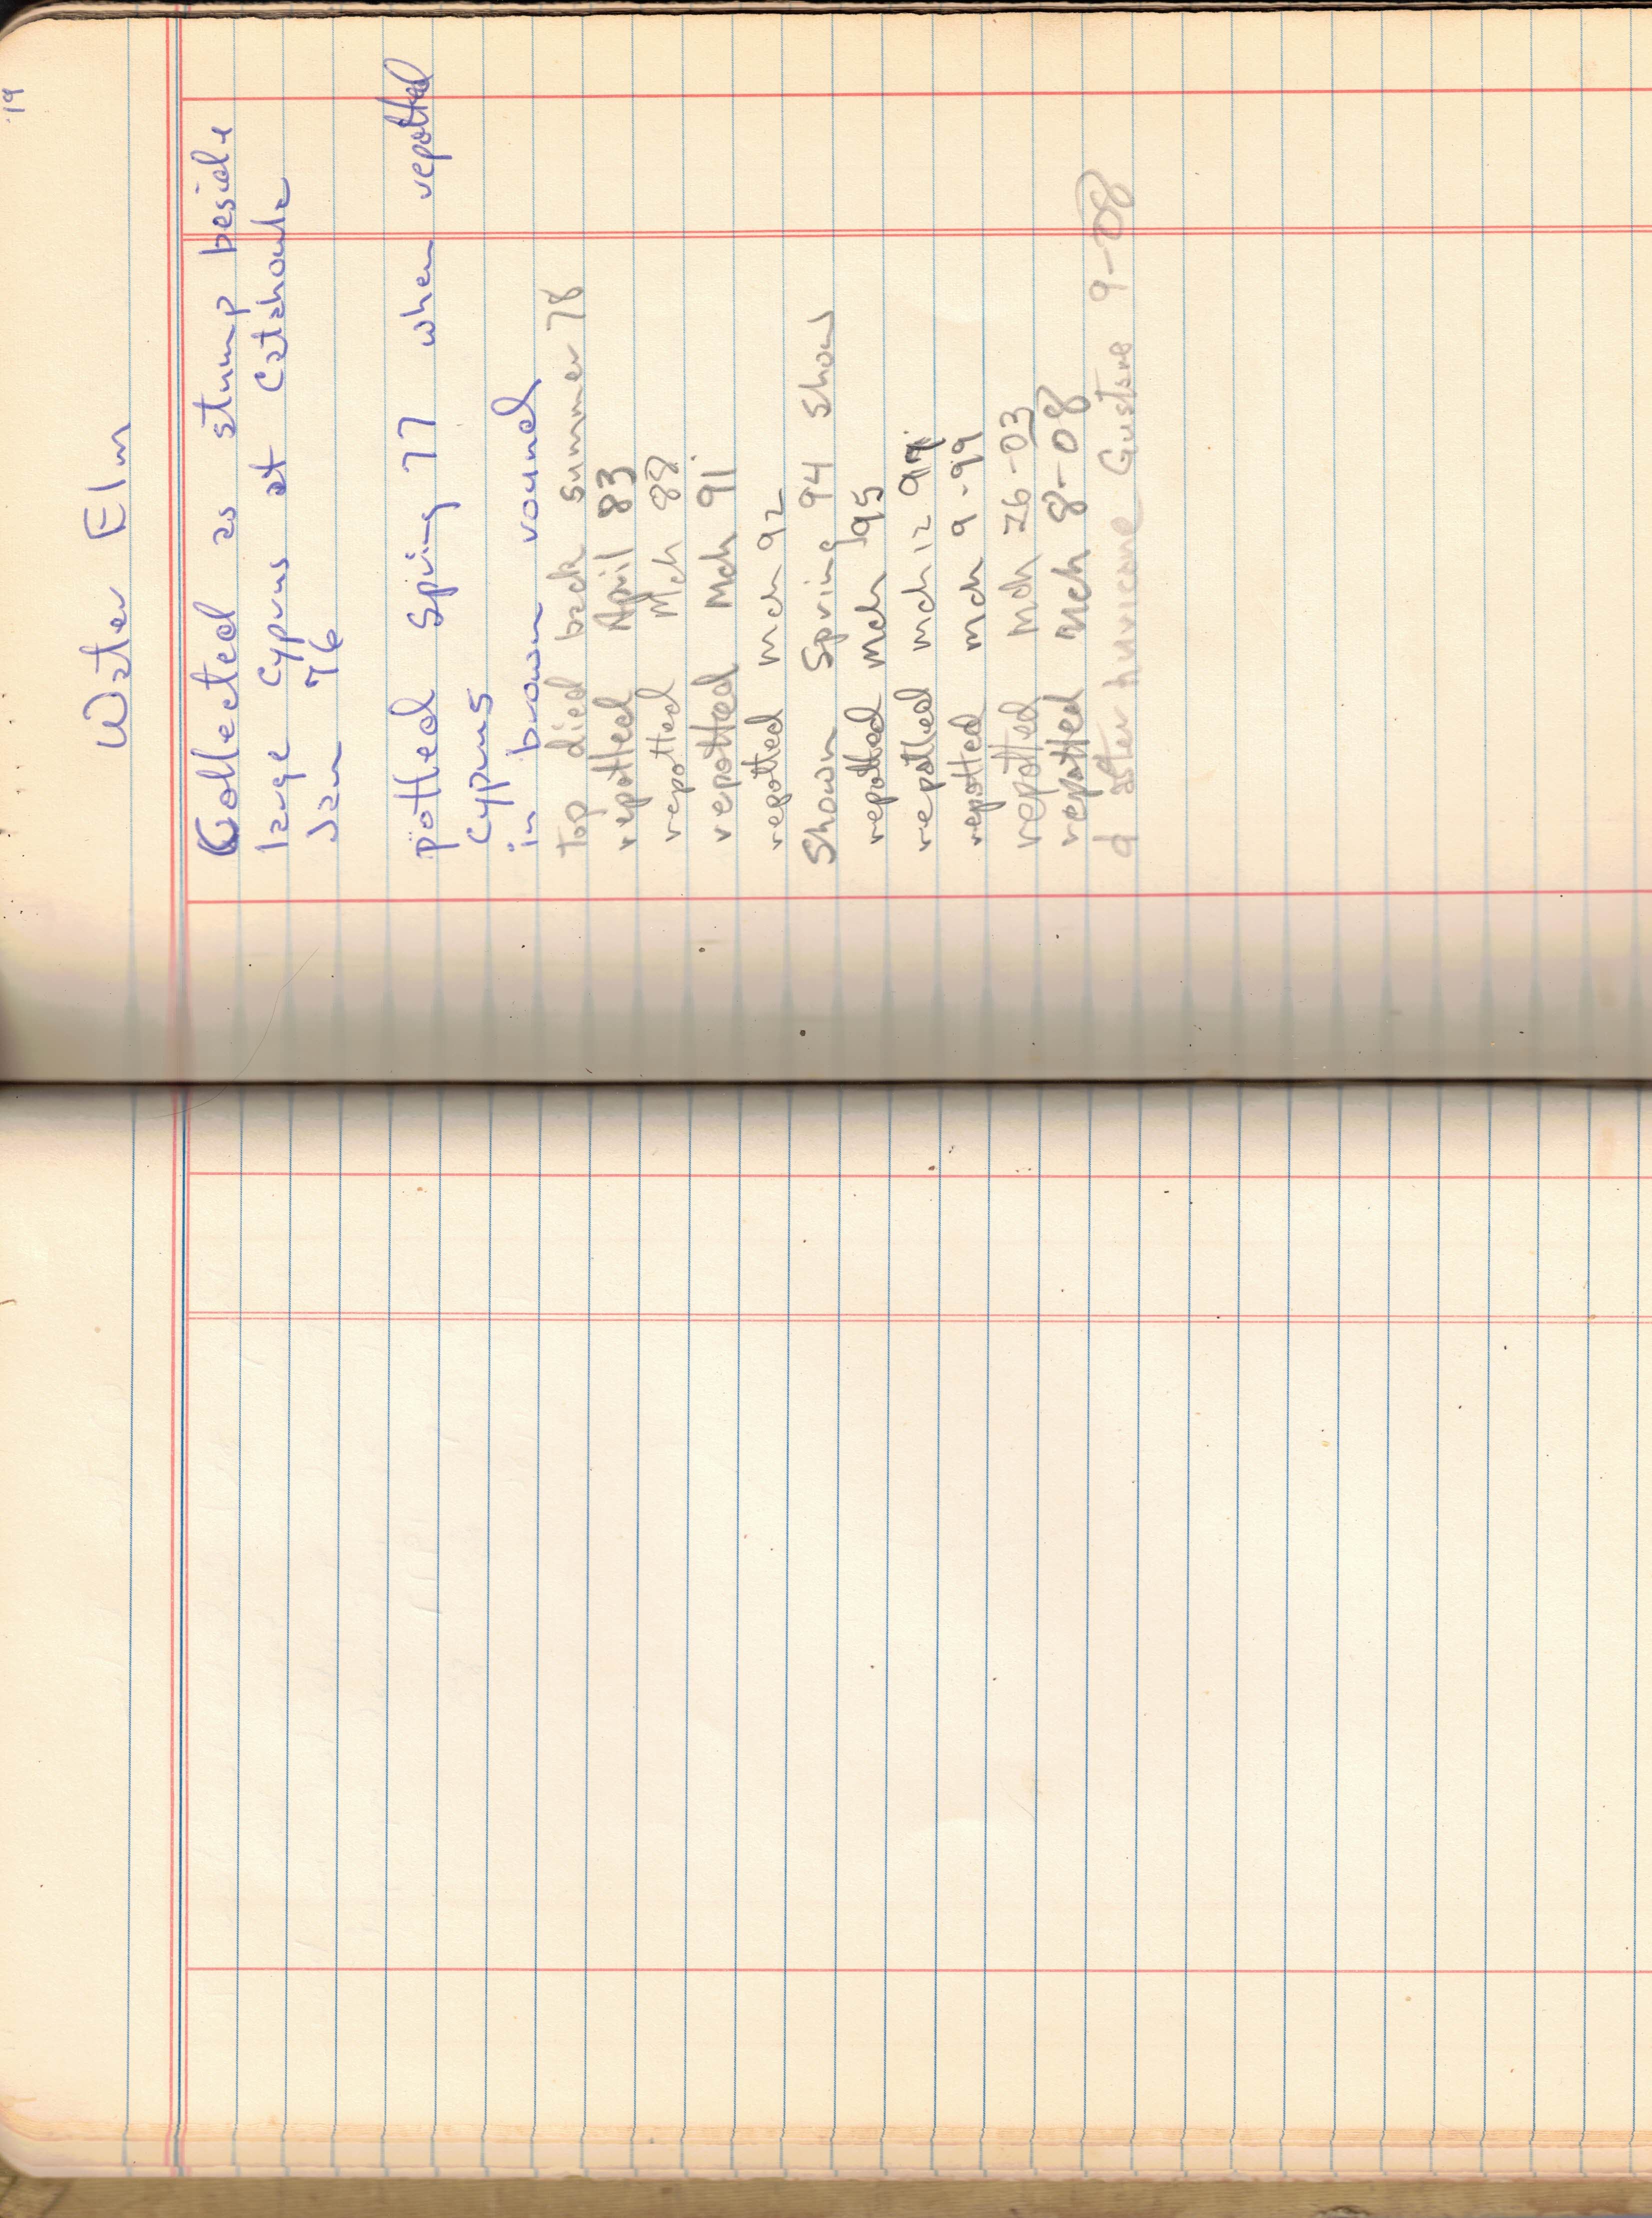 19
Water Elm
Collected as stump beside
large Cyprus at Catahoula
Jan 76
potted Spring 77 when repotted
Cyprus
in brown round
top died back summer 78
repotted April 83
repotted Mch 88
repotted Mch 91
repotted Mch 92
Shown Spring 94 Show
repotted Mch 95
repotted Mch 12 97
repotted Mch 9-99
repotted Mch 26-03
repotted Mch 8-08
d after hurricane Gustave 9-08